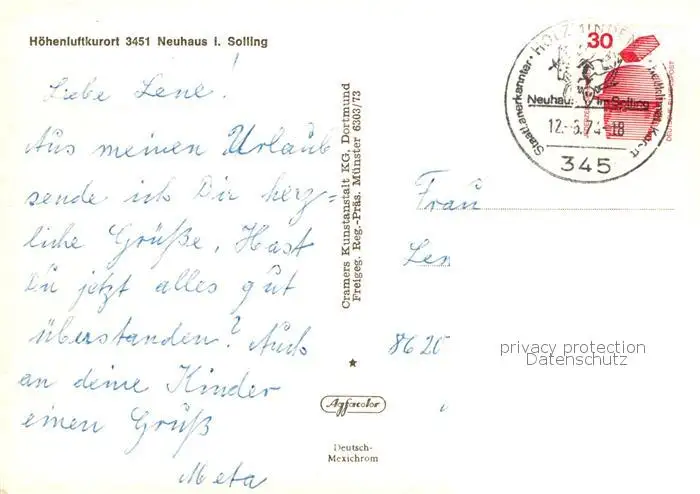 Höhenluftkurort 3451 Neuhaus i. Solling
Liebe Lene!
Aus meinen Urlaub
sende ich Dir herz=
liche Grüße. Hast
Du jetzt alles gut
überstanden? Auch
an deine Kinder
einen Gruß
Meta
Cramers Kunstanstalt KG. Dortmund
Freigeg. Reg.-Präs. Münster 6303/73
Agfacolor
Deutsch-
Mexichrom
30
HOLZMINDEN
Staatl. anerkannter
Neuhaus im Solling
345
Frau
Len
8620
privacy protection
Datenschutz